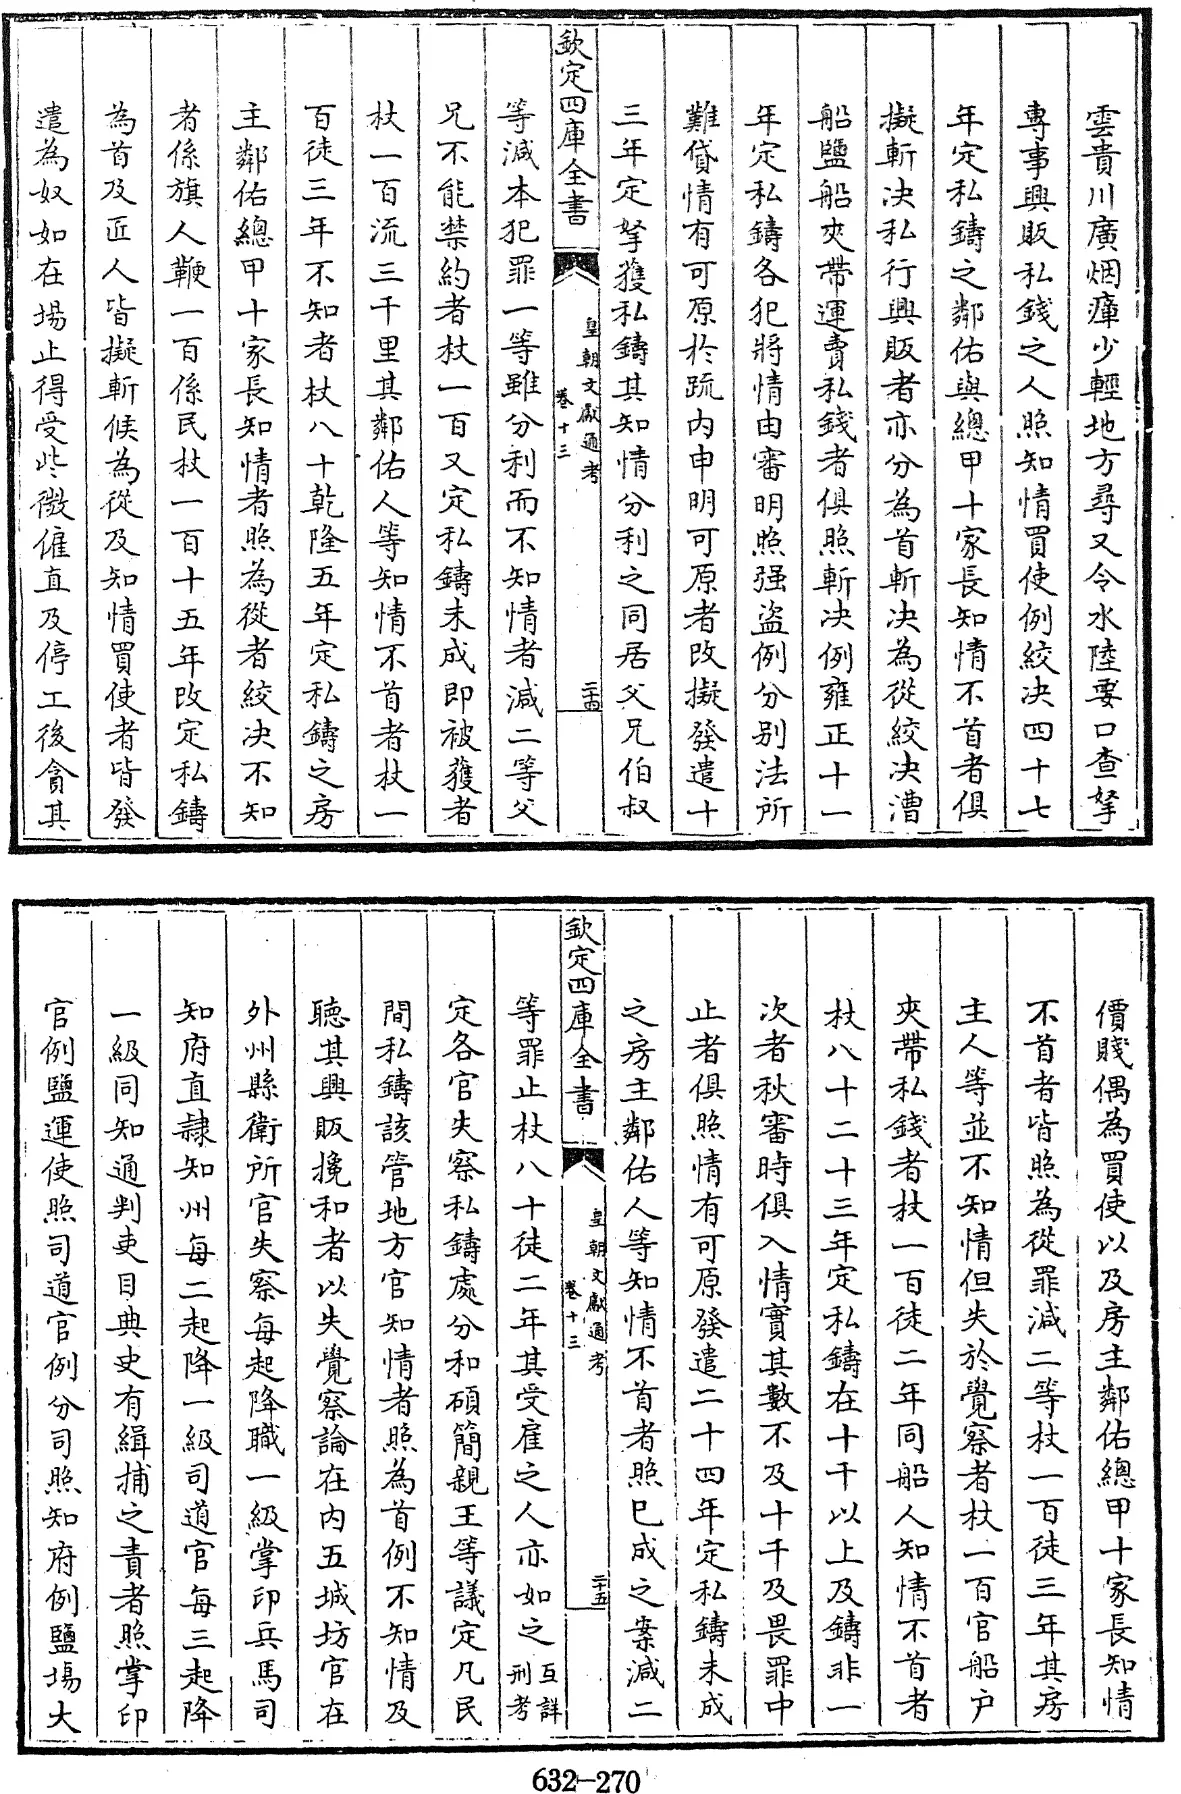 雲貴川廣烟瘴少輕地方尋又令水陸要口查拏
專事興販私錢之人照知情買使例絞决四十七
年定私鑄之鄰佑與總甲十家長知情不首者俱
擬斬决私行興販者亦分為首斬决為從絞决漕
船鹽船夾帶運賣私錢者俱照斬决例雍正十一
年定私鑄各犯將情由審明照强盜例分别法所
難貸情有可原於疏内申明可原者改擬發遣十
三年定拏獲私鑄其知情分利之同居父兄伯叔
欽定四庫全書
皇朝文獻通考
卷十三
二十四
等減本犯罪一等雖分利而不知情者減二等父
兄不能禁約者杖一百又定私鑄未成即被獲者
杖一百流三千里其鄰佑人等知情不首者杖一
百徒三年不知者杖八十乾隆五年定私鑄之房
主鄰佑總甲十家長知情者照為從者絞决不知
者係旗人鞭一百係民杖一百十五年改定私鑄
為首及匠人皆擬斬候為從及知情買使者皆發
遣為奴如在場止得受些微雇直及停工後貪其
價賤偶為買使以及房主鄰佑總甲十家長知情
不首者皆照為從罪減二等杖一百徒三年其房
主人等並不知情但失於覺察者杖一百官船户
夾帶私錢者杖一百徒二年同船人知情不首者
杖八十二十三年定私鑄在十千以上及鑄非一
次者秋審時俱入情實其數不及十千及畏罪中
止者俱照情有可原發遣二十四年定私鑄未成
之房主鄰佑人等知情不首者照已成之案減二
欽定四庫全書
皇朝文獻通考
卷十三
二十五
等罪止杖八十徒二年其受雇之人亦如之互詳刑考
定各官失察私鑄處分和碩簡親王等議定凡民
間私鑄該管地方官知情者照為首例不知情及
聽其興販攙和者以失覺察論在内五城坊官在
外州縣衛所官失察每起降職一級掌印兵馬司
知府直隸知州每二起降一級司道官每三起降
一級同知通判吏目典史有緝捕之責者照掌印
官例鹽運使照司道官例分司照知府例鹽場大
632-270